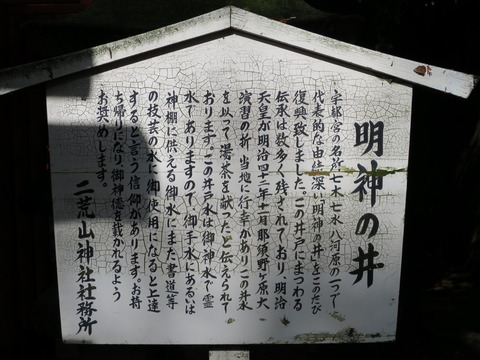 明神の井
宇都宮の名所七木七水八河原の一つで
代表的な由緒深い「明神の井」をこのたび
復興致しました。この井戸にまつわる
伝承は数多く残されており、明治
天皇が明治四十二年十一月那須野ヶ原大
演習の折、当地に行幸があり、この井水
を以って湯茶を献ったと伝えられて
おります。この井戸水は御神水で霊
水でありますので、御手水にあるいは
神棚に供える御水にまた書道等
の技芸の水に御使用になると上達
すると言う信仰があります。お持
ち帰りになり、御神徳を戴かれるよう
お奨めします。
二荒山神社社務所